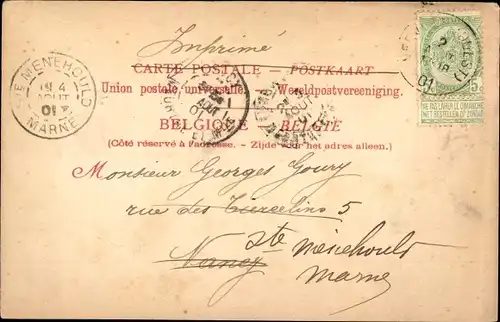 Imprimé
CARTE POSTALE — POSTKAART
Union postale universelle. Wereldpostvereeniging.
BELGIQUE BELGIË
(Côté réservé à l'adresse. - Zijde voor het adres alleen.)
Monsieur Georges Goury
rue des Tiercelins 5
Nancy Ste Menehould
Marne
STE MENEHOULD
4
AOUT
01
MARNE
5c
NE PAS LIVRER LE DIMANCHE
NIET BESTELLEN OP ZONDAG